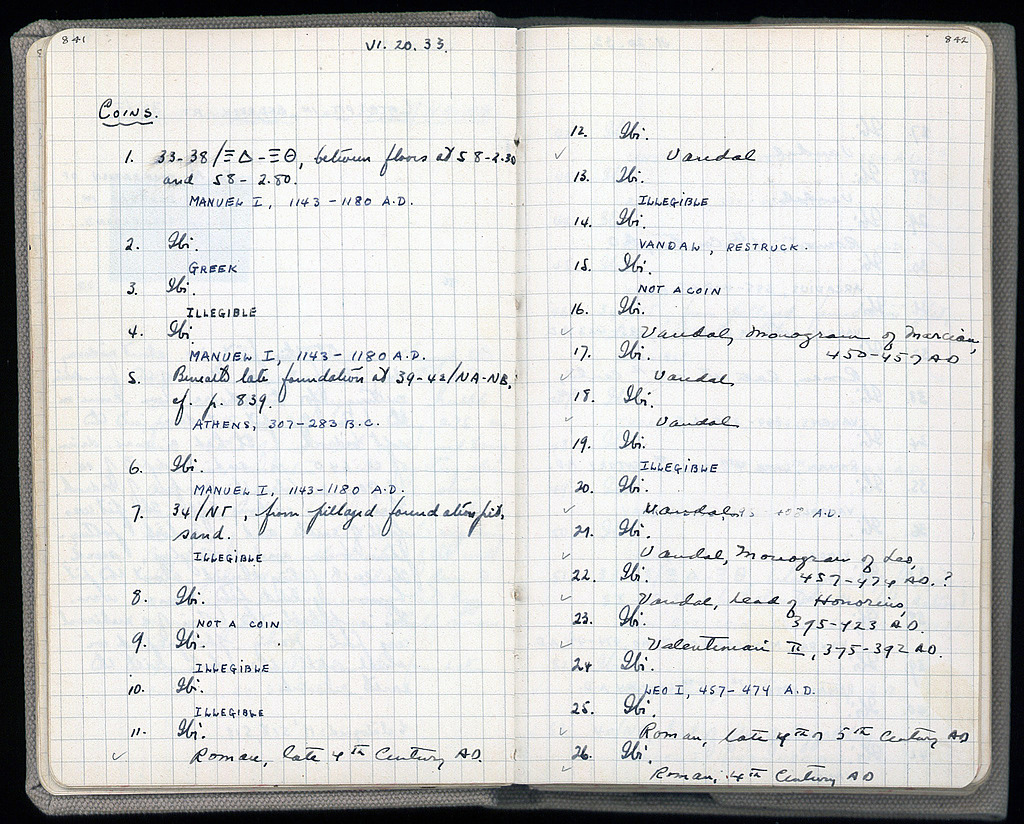 841
VI. 20. 33.
COINS.
1. 33-38/ΞΔ-ΞΘ, between floors at 58-2.30
and 58-2.80.
MANUEL I, 1143-1180 A.D.
2. Ibi.
GREEK
3. Ibi.
ILLEGIBLE
4. Ibi.
MANUEL I, 1143-1180 A.D.
5. Beneath late foundation at 39-42/NA-NB,
cf. p. 839.
ATHENS, 307-283 B.C.
6. Ibi.
MANUEL I, 1143-1180 A.D.
7. 34/NΓ, from pillaged foundation pit,
sand.
ILLEGIBLE
8. Ibi.
NOT A COIN
9. Ibi.
ILLEGIBLE
10. Ibi.
ILLEGIBLE
11. Ibi.
✓ Roman, late 4th Century AD.
842
12. Ibi.
✓ Vandal
13. Ibi.
ILLEGIBLE
14. Ibi.
VANDAL, RESTRUCK.
15. Ibi.
NOT A COIN
16. Ibi.
✓ Vandal, Monogram of Marcian,
450-457 AD
17. Ibi.
✓ Vandal
18. Ibi.
✓ Vandal
19. Ibi.
ILLEGIBLE
20. Ibi.
✓ Vandal, A.D.
21. Ibi.
✓ Vandal, Monogram of Leo,
457-474 AD.?
22. Ibi.
✓ Vandal, head of Honorius,
395-423 AD.
23. Ibi.
✓ Valentinian II, 375-392 AD.
24 Ibi.
LEO I, 457-474 A.D.
25. Ibi.
✓ Roman, late 4th or 5th Century AD
26. Ibi.
✓ Roman, 4th Century AD